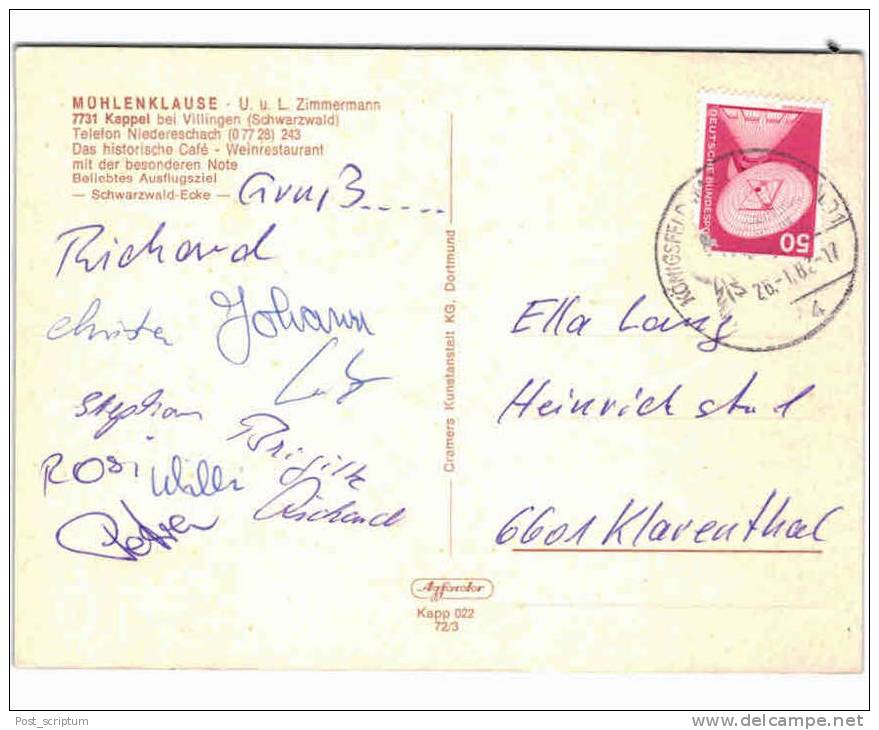 MÜHLENKLAUSE - U. u. L. Zimmermann
7731 Kappel bei Villingen (Schwarzwald)
Telefon Niedereschach (0 77 28) 243
Das historische Café - Weinrestaurant
mit der besonderen Note
Beliebtes Ausflugsziel
— Schwarzwald-Ecke —
Gruß.....
Richard
Christa Johann
Stephan
Brigitte
ROSi Willi
Richard
Petra
Cramers Kunstanstalt KG, Dortmund
Agfacolor
Kapp 022
72/3
DEUTSCHE BUNDESPOST
50
KÖNIGSFELD
26.-1.82-17
Ella Lang
Heinrichstr. 1
6601 Klarenthal
Post_scriptum
www.delcampe.net